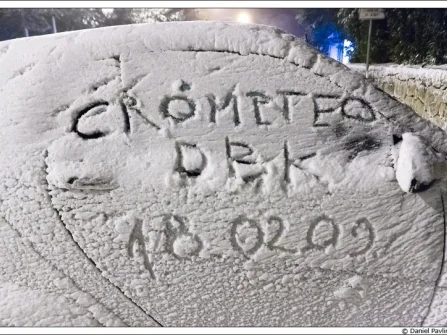 CRÓMETEO
DBK
18.02.09
© Daniel Pavli